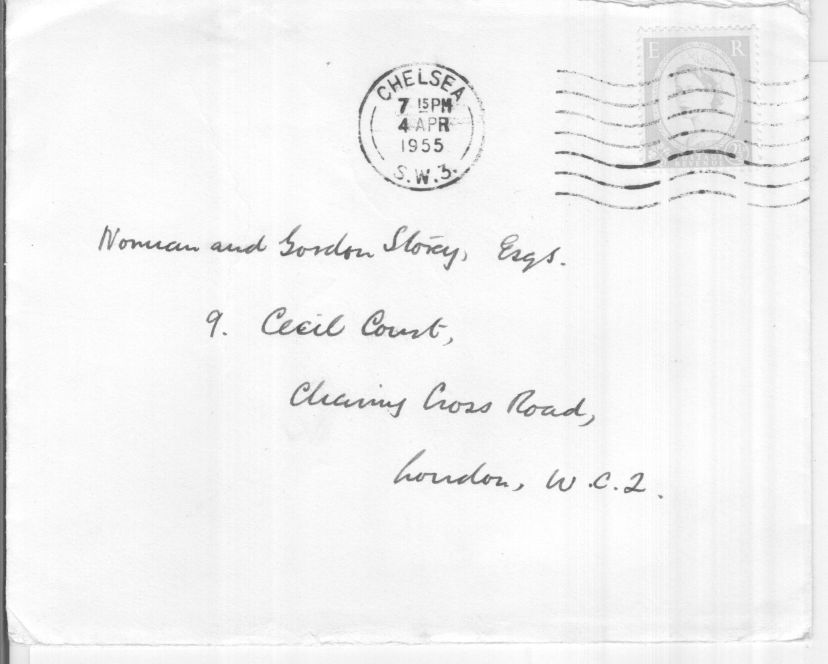 CHELSEA
7 15PM
4 APR
1955
S.W.3.
E R
Norman and Gordon Storey, Esqs.
9. Cecil Court,
Charing Cross Road,
London, W.C.2.